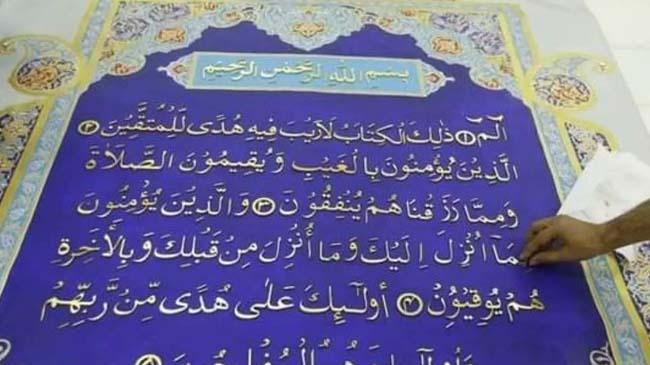 بسم الله الرحمن الرحيم
الم ۝١ ذلك الكتاب لا ريب فيه هدى للمتقين ۝٢
الذين يؤمنون بالغيب ويقيمون الصلاة
ومما رزقناهم ينفقون ۝٣ والذين يؤمنون
بما أنزل إليك وما أنزل من قبلك وبالآخرة
هم يوقنون ۝٤ أولئك على هدى من ربهم
هم المفلحون ۝٥